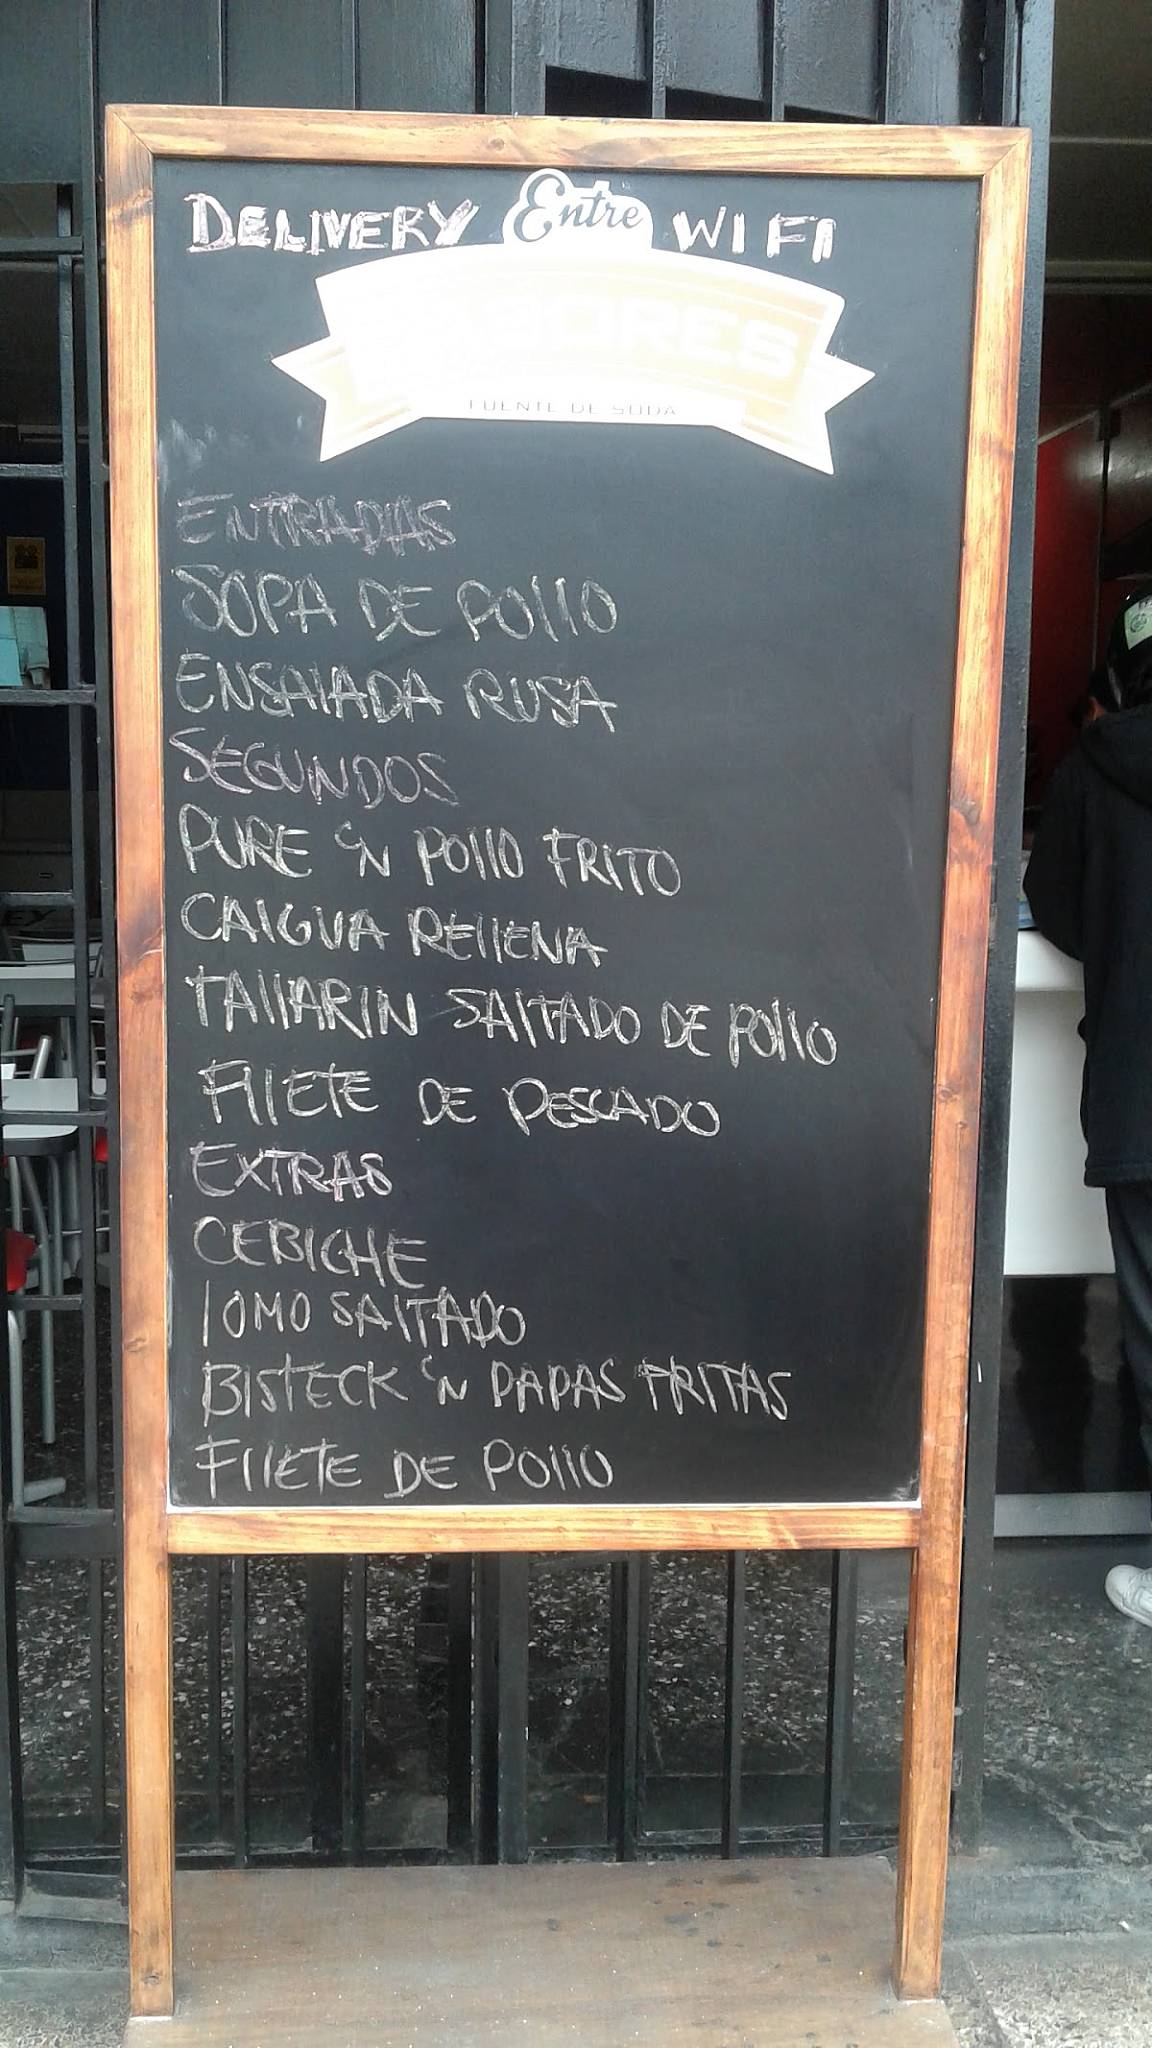 DELIVERY Entre WI FI
SABORES
FUENTE DE SODA
ENTRADAS
SOPA DE POllO
ENSAlADA RUSA
SEGUNDOS
PURE 'N POllO FRITO
CAIGUA REllENA
TAllARIN SAlTADO DE POllO
FIlETE DE PESCADO
EXTRAS
CEBICHE
lOMO SAlTADO
BISTECK 'N PAPAS FRITAS
FIlETE DE POllO